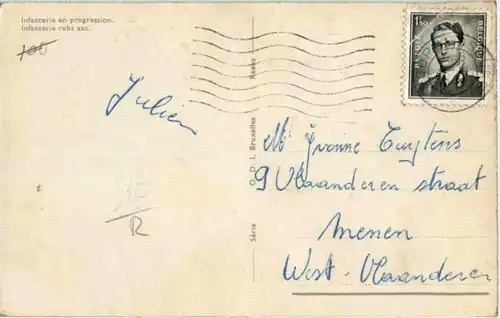 Infanterie en progression.
Infanterie rukt aan.
100
Julien
Série
O. D. I. Bruxelles
Reeks
1F50
BELGIE
BELGIQUE
Mr Yvonne Tuytens
9 Vlaanderen straat
Menen
West-Vlaanderen
R